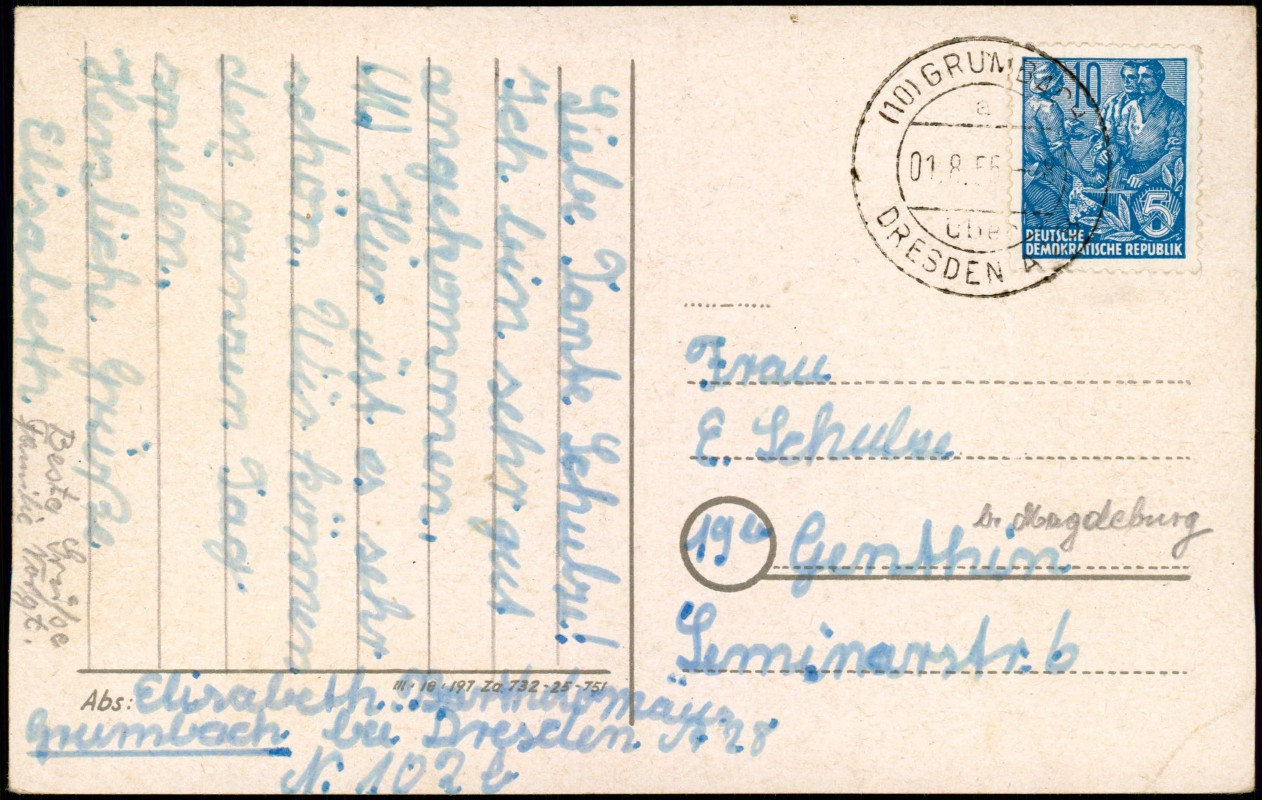 Liebe Tante Schulze!
Ich bin sehr gut
angekommen.
Hier ist es sehr
schön. Wir können
den ganzen Tag
spielen.
Herzliche Grüße
Elisabeth.
Beste Grüße
Familie
Abs: Elisabeth Bartholomäus
Grumbach bei Dresden A 28
N. 102 b
III·18·197 Za 732-25-751
(10) GRUMBACH
a
01.8.56
über
DRESDEN A
10
5
DEUTSCHE
DEMOKRATISCHE REPUBLIK
Frau
E. Schulze
b. Magdeburg
19a Genthin
Seminarstr. 6